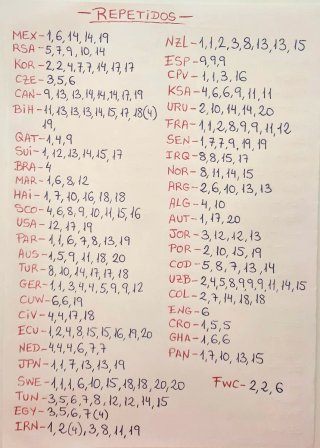 -REPETIDOS-
MEX-1,6,14,14,19
RSA-5,7,9,10,14
KOR-2,2,4,7,7,14,17,17
CZE-3,5,6
CAN-9,13,13,14,14,14,17,19
BiH-11,13,13,13,14,15,17,18(4)
19,
QAT-1,4,9
SUi-1,12,13,14,15,17
BRA-4
MAR-1,6,8,12
HAi-1,7,10,16,18,18
SCO-4,6,8,9,10,11,15,16
USA-12,17,19
PAR-1,1,6,7,8,13,19
AUS-1,5,9,11,18,20
TUR-8,10,14,17,17,18
GER-1,1,3,4,4,5,9,9,12
CUW-6,6,19
CiV-4,4,17,18
ECU-1,2,4,8,15,15,16,19,20
NED-4,4,4,6,7,7
JPN-1,1,7,13,13,19
SWE-1,1,1,6,10,15,18,18,20,20
TUN-3,5,6,7,8,12,12,14,15
EGY-3,5,6,7(4)
IRN-1,2(4),3,8,11,19
NZL-1,1,2,3,8,13,13,15
ESP-9,9,9
CPV-1,1,3,16
KSA-4,6,6,9,11,11
URU-2,10,14,14,20
FRA-1,1,2,8,9,9,11,12
SEN-1,7,7,9,19,19
IRQ-8,8,15,17
NOR-8,11,14,15
ARG-2,6,10,13,13
ALG-4,10
AUT-1,17,20
JOR-3,12,12,13
POR-2,10,15,19
COD-5,8,7,13,14
UZB-2,4,5,8,9,9,9,11,14,15
COL-2,7,14,18,18
ENG-6
CRO-1,5,5
GHA-1,6,6
PAN-1,7,10,13,15
FWC-2,2,6